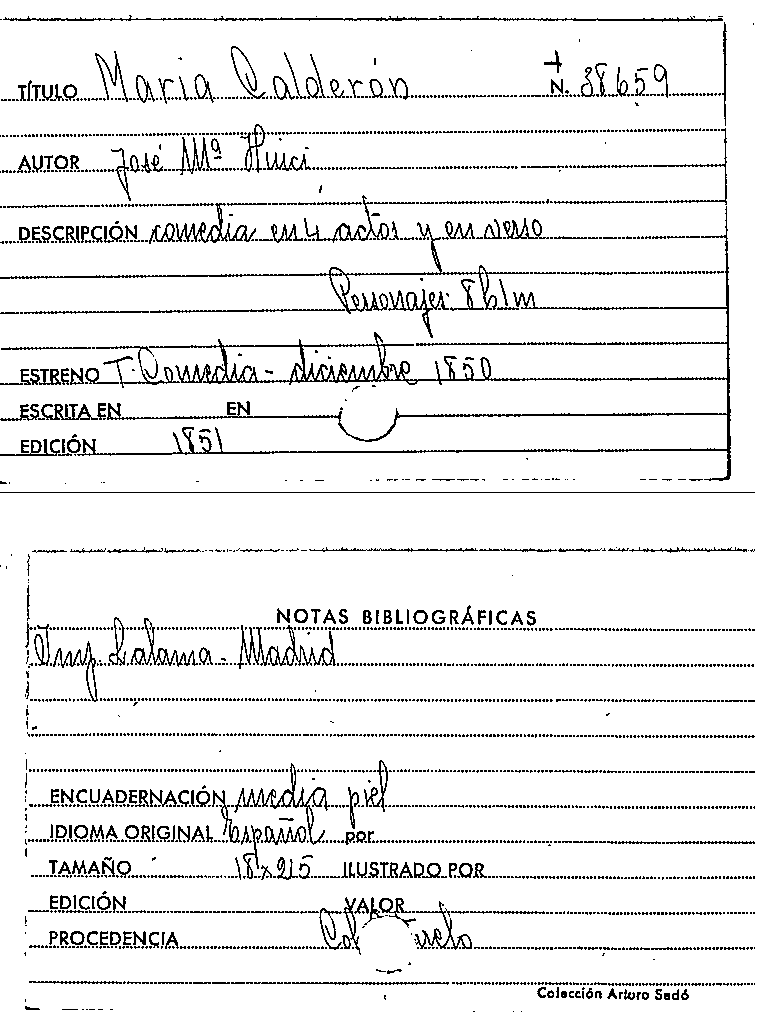 TÍTULO Maria Calderón N. 38659
AUTOR José Mª Huici
DESCRIPCIÓN comedia en 4 actos y en verso
Personajes 8h1m
ESTRENO T. Comedia - diciembre 1850
ESCRITA EN EN
EDICIÓN 1851
NOTAS BIBLIOGRÁFICAS
Imp. Lalama - Madrid
ENCUADERNACIÓN media piel
IDIOMA ORIGINAL Español por
TAMAÑO 18x215 ILUSTRADO POR
EDICIÓN VALOR
PROCEDENCIA
Colección Arturo Sedó